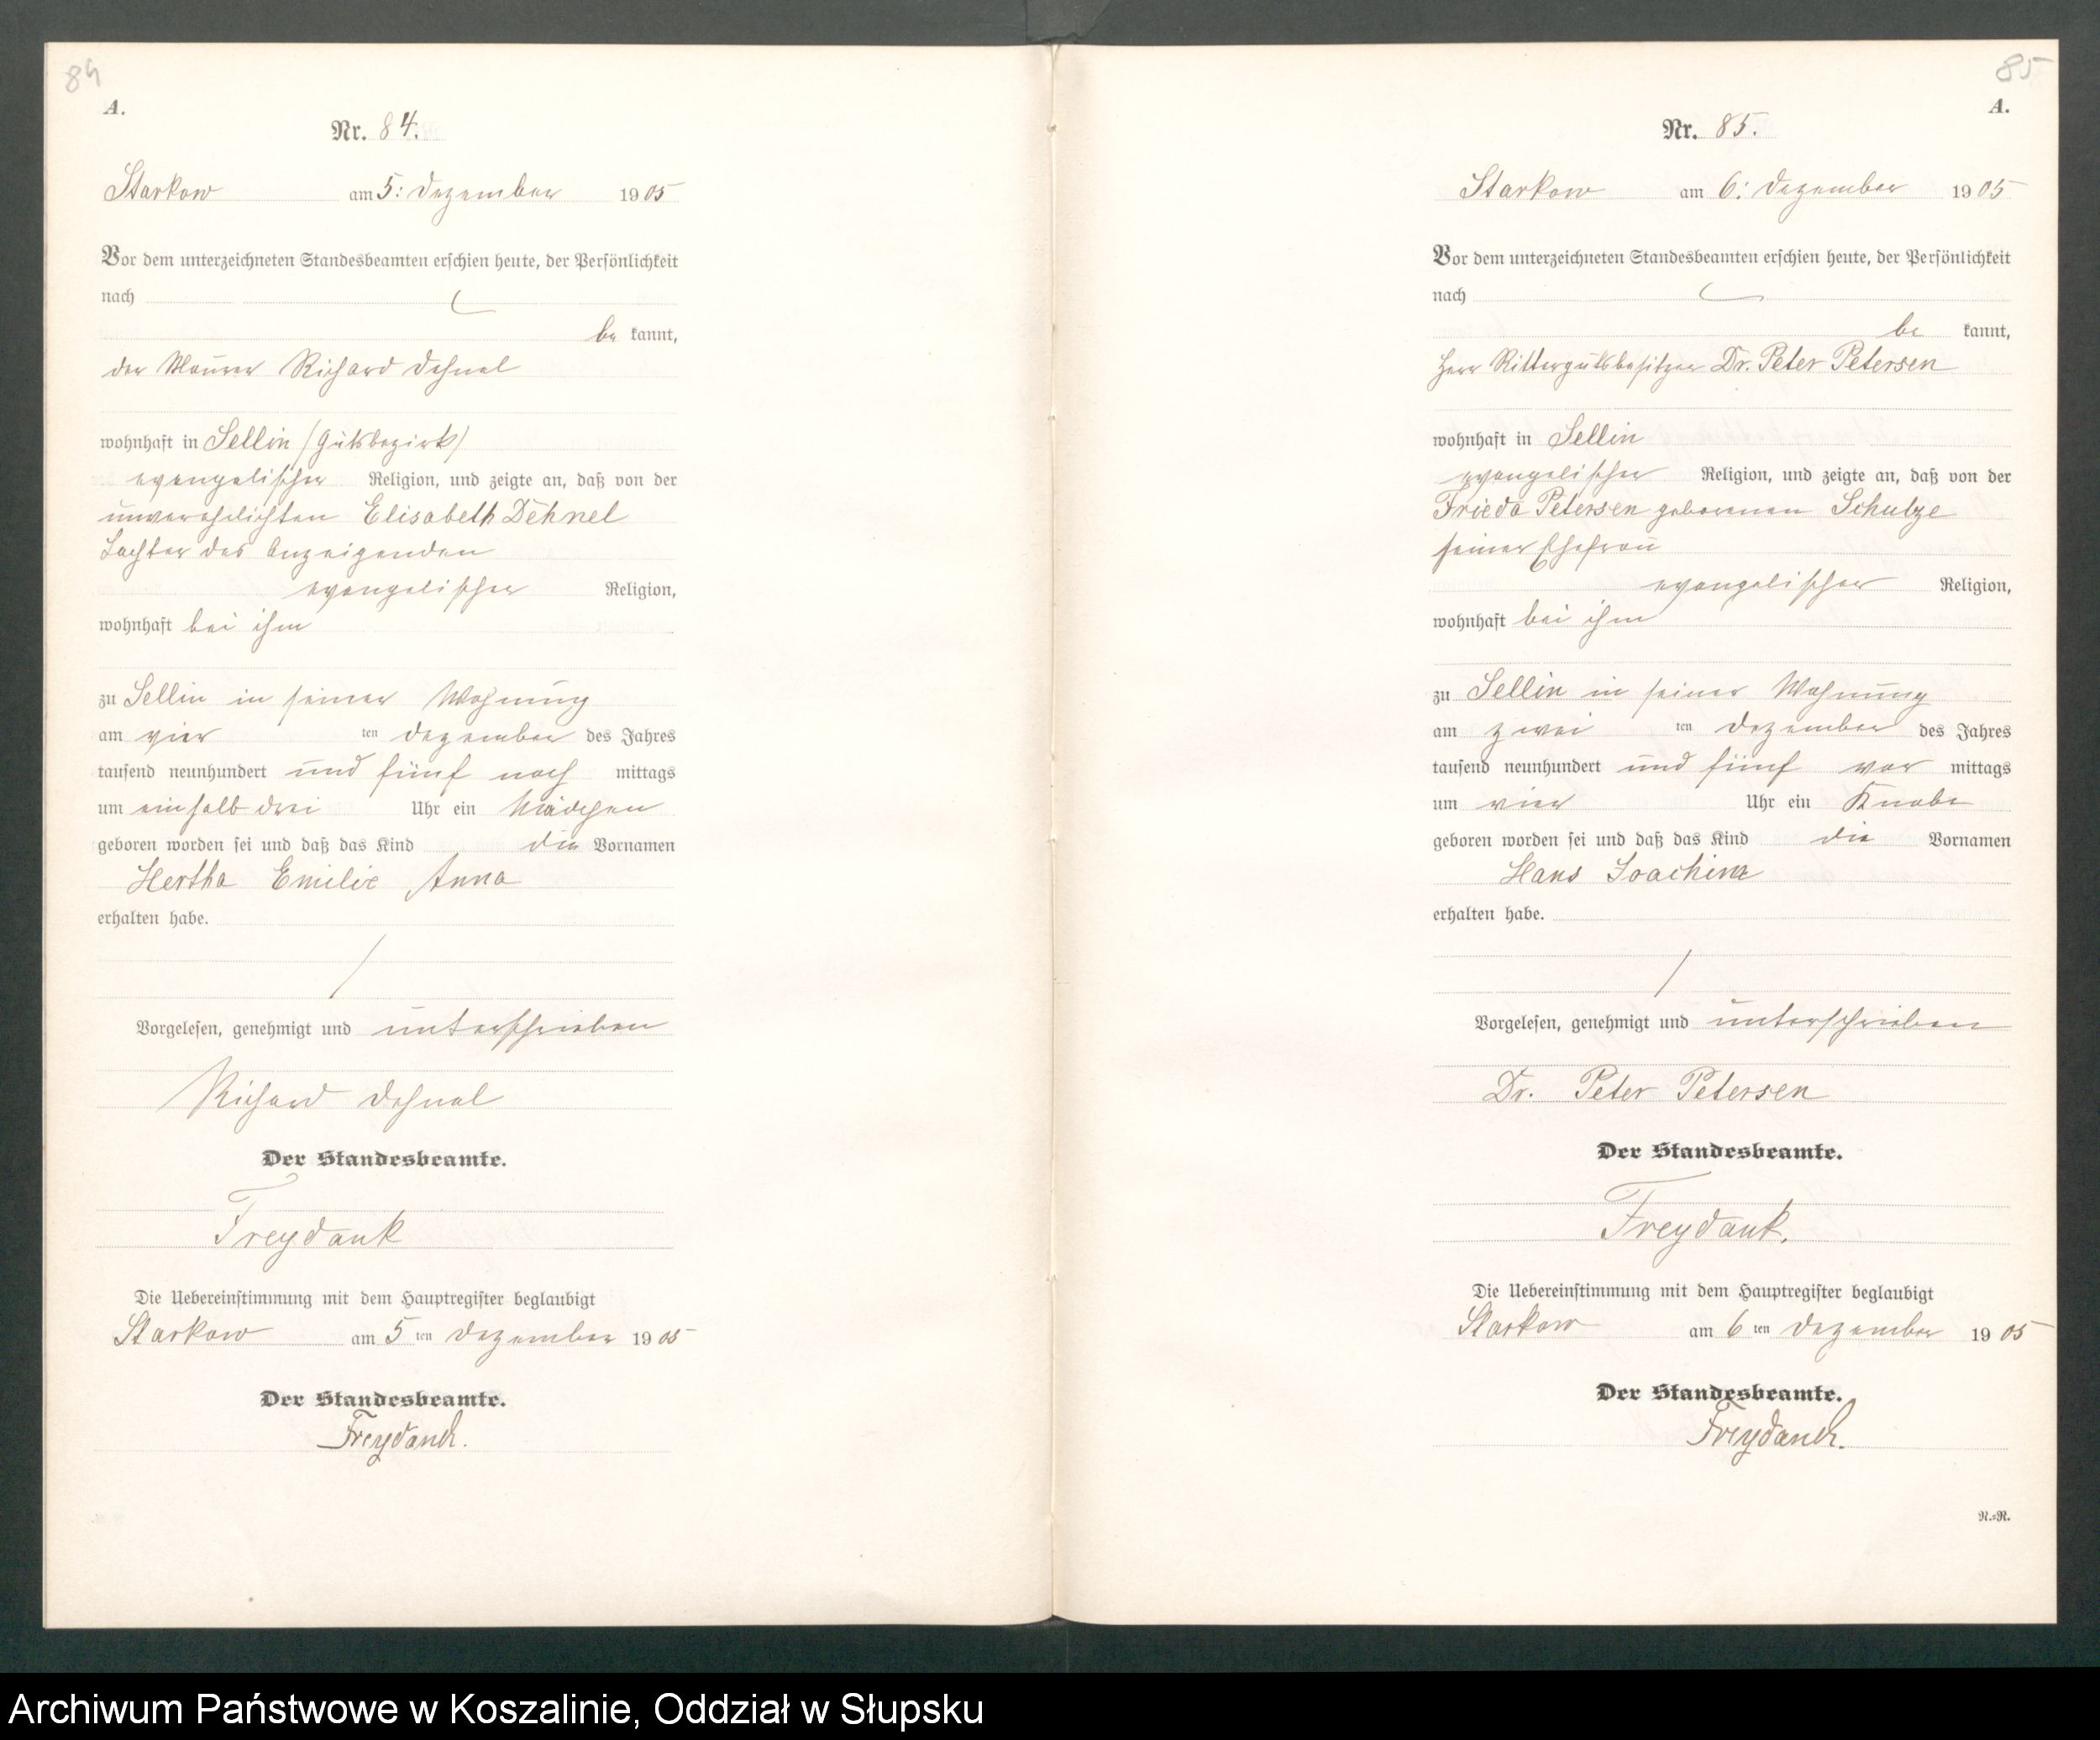 84
A.
Nr. 84.
Starkow am 5: Dezember 1905
Vor dem unterzeichneten Standesbeamten erschien heute, der Persönlichkeit
nach
be kannt,
der Maurer Richard Dehnel
wohnhaft in Sellin /Gutsbezirk/
evangelischer Religion, und zeigte an, daß von der
unverehelichten Elisabeth Dehnel
Tochter des Anzeigenden
evangelischer Religion,
wohnhaft bei ihm
zu Sellin in seiner Wohnung
am vier ten Dezember des Jahres
tausend neunhundert und fünf nach mittags
um einhalb drei Uhr ein Mädchen
geboren worden sei und daß das Kind die Vornamen
Hertha Emilie Anna
erhalten habe.
Vorgelesen, genehmigt und unterschrieben
Richard Dehnel
Der Standesbeamte.
Freydank
Die Uebereinstimmung mit dem Hauptregister beglaubigt
Starkow am 5 ten Dezember 1905
Der Standesbeamte.
Freydank.
85
A.
Nr. 85.
Starkow am 6: Dezember 1905
Vor dem unterzeichneten Standesbeamten erschien heute, der Persönlichkeit
nach
be kannt,
Herr Rittergutsbesitzer Dr. Peter Petersen
wohnhaft in Sellin
evangelischer Religion, und zeigte an, daß von der
Frieda Petersen geborenen Schulze
seiner Ehefrau
evangelischer Religion,
wohnhaft bei ihm
zu Sellin in seiner Wohnung
am zwei ten Dezember des Jahres
tausend neunhundert und fünf vor mittags
um vier Uhr ein Knabe
geboren worden sei und daß das Kind die Vornamen
Hans Joachim
erhalten habe.
Vorgelesen, genehmigt und unterschrieben
Dr. Peter Petersen
Der Standesbeamte.
Freydank.
Die Uebereinstimmung mit dem Hauptregister beglaubigt
Starkow am 6 ten Dezember 1905
Der Standesbeamte.
Freydank.
N.=R.
Archiwum Państwowe w Koszalinie, Oddział w Słupsku